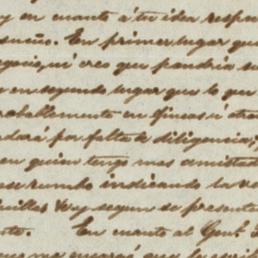 y en cuanto á tu idea respe
sueño. En primer lugar que
negocio, ni creo que pondria su
y en segundo lugar que lo que
probablemente en fincas ú otra
dará por falta de diligencia;
en quien tengo mas amistad
ese rumbo indicando la ve
segun se presente
En cuanto al Genl.
que